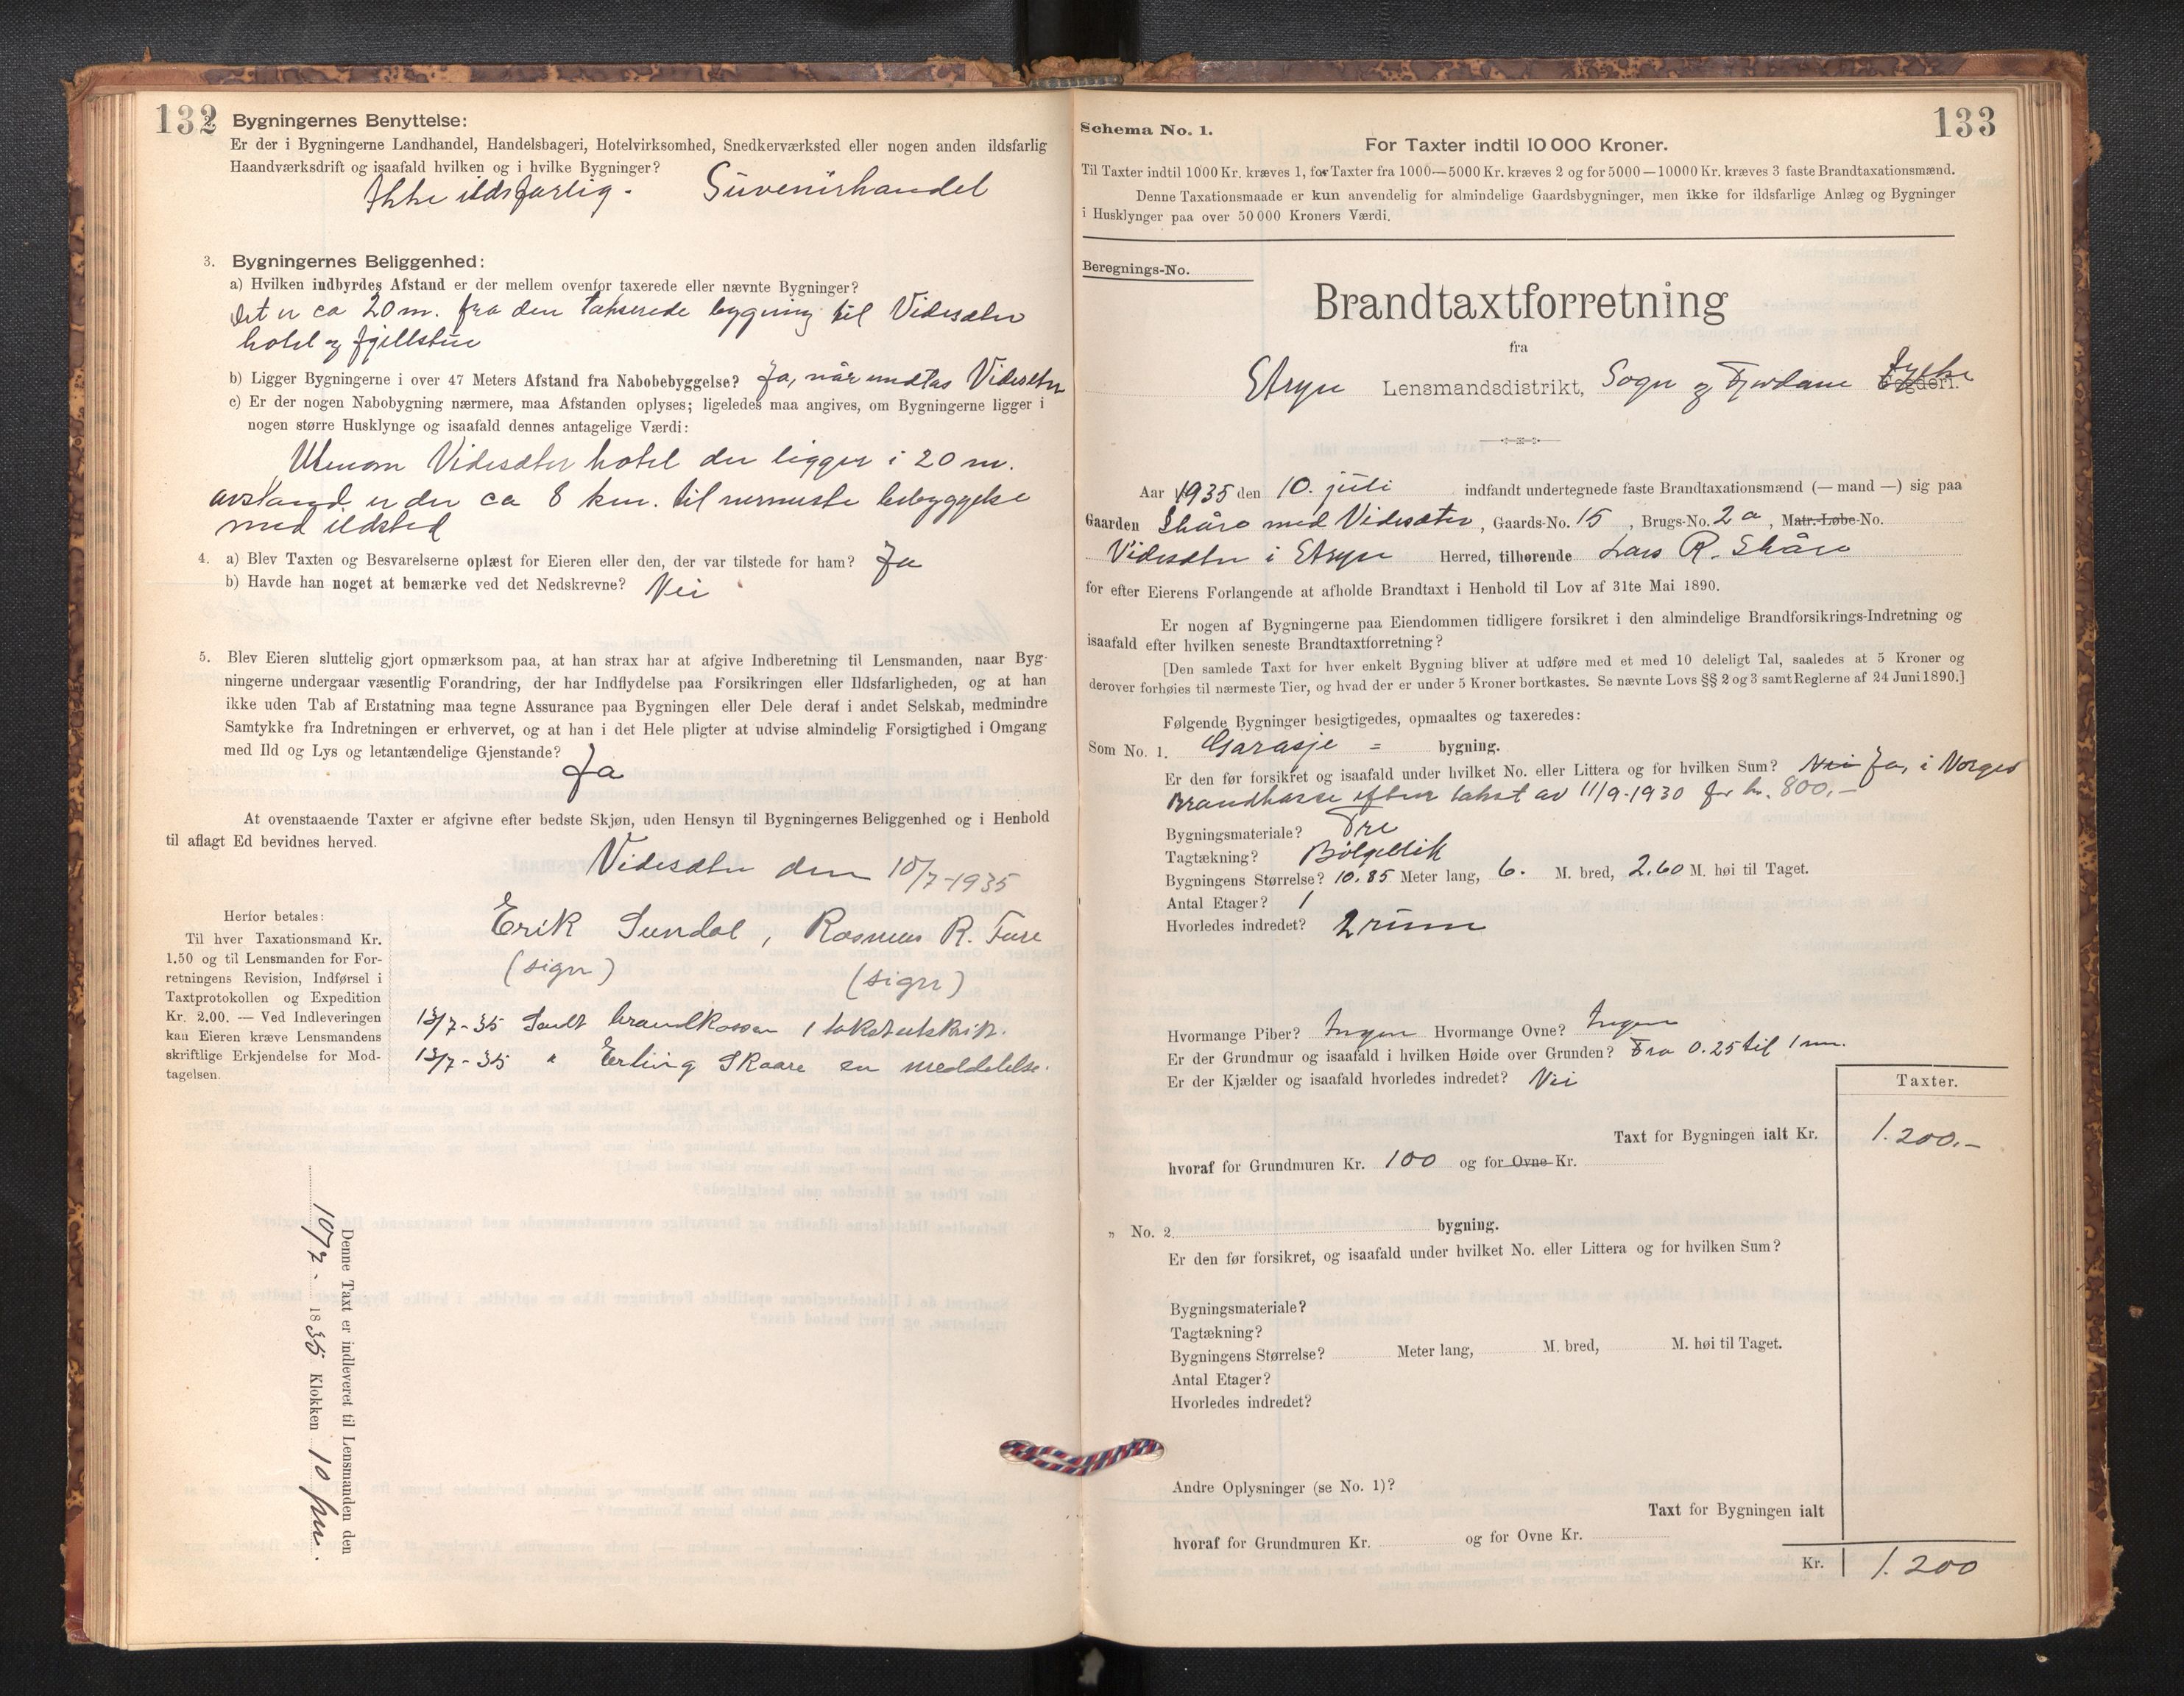 132
2. Bygningernes Benyttelse:
Er der i Bygningerne Landhandel, Handelsbageri, Hotelvirksomhed, Snedkerværksted eller nogen anden ildsfarlig
Haandværksdrift og isaafald hvilken og i hvilke Bygninger?
Ikke ildsfarlig. Suvenirhandel
3. Bygningernes Beliggenhed:
a) Hvilken indbyrdes Afstand er der mellem ovenfor taxerede eller nævnte Bygninger?
Det er ca 20 m. fra den takserede bygning til Videsæter
hotel og fjellstue
b) Ligger Bygningerne i over 47 Meters Afstand fra Nabobebyggelse? Ja, når undtas Videsæter
c) Er der nogen Nabobygning nærmere, maa Afstanden oplyses; ligeledes maa angives, om Bygningerne ligger i
nogen større Husklynge og isaafald dennes antagelige Værdi:
Utenom Videsæter hotel der ligger i 20 m.
avstand er der ca 8 km. til nermeste bebyggelse
med ildsted
4. a) Blev Taxten og Besvarelserne oplæst for Eieren eller den, der var tilstede for ham? Ja
b) Havde han noget at bemærke ved det Nedskrevne? Nei
5. Blev Eieren sluttelig gjort opmærksom paa, at han strax har at afgive Indberetning til Lensmanden, naar Byg-
ningerne undergaar væsentlig Forandring, der har Indflydelse paa Forsikringen eller Ildsfarligheden, og at han
ikke uden Tab af Erstatning maa tegne Assurance paa Bygningen eller Dele deraf i andet Selskab, medmindre
Samtykke fra Indretningen er erhvervet, og at han i det Hele pligter at udvise almindelig Forsigtighed i Omgang
med Ild og Lys og letantændelige Gjenstande?
Ja
At ovenstaaende Taxter er afgivne efter bedste Skjøn, uden Hensyn til Bygningernes Beliggenhed og i Henhold
til aflagt Ed bevidnes herved.
Videsæter den 10/7-1935
Erik Sundal, Rasmus R. Fure
(sign) (sign)
Herfor betales:
Til hver Taxationsmand Kr.
1.50 og til Lensmanden for For-
retningens Revision, Indførsel i
Taxtprotokollen og Expedition
Kr. 2.00. — Ved Indleveringen
kan Eieren kræve Lensmandens
skriftlige Erkjendelse for Mod-
tagelsen.
13/7-35 Sendt brandkassen 1 takstutskrift.
13/7-35 " Erling Skaare en meddelelse.
Denne Taxt er indleveret til Lensmanden den
10/7. 1835 Klokken 10 fm.
133
Schema No. 1.
For Taxter indtil 10 000 Kroner.
Til Taxter indtil 1000 Kr. kræves 1, for Taxter fra 1000—5000 Kr. kræves 2 og for 5000—10000 Kr. kræves 3 faste Brandtaxationsmænd.
Denne Taxationsmaade er kun anvendelig for almindelige Gaardsbygninger, men ikke for ildsfarlige Anlæg og Bygninger
i Husklynger paa over 50 000 Kroners Værdi.
Beregnings-No.
Brandtaxtforretning
fra
Stryn Lensmandsdistrikt, Sogn og Fjordane Fogderi. Fylke
Aar 1935 den 10. juli indfandt undertegnede faste Brandtaxationsmænd (— mand —) sig paa
Gaarden Skåre med Videsæter, Gaards-No. 15, Brugs-No. 2a, Matr.-Løbe-No.
Videsæter i Stryn Herred, tilhørende Lars R. Skåre
for efter Eierens Forlangende at afholde Brandtaxt i Henhold til Lov af 31te Mai 1890.
Er nogen af Bygningerne paa Eiendommen tidligere forsikret i den almindelige Brandforsikrings-Indretning og
isaafald efter hvilken seneste Brandtaxtforretning?
[Den samlede Taxt for hver enkelt Bygning bliver at udføre med et med 10 deleligt Tal, saaledes at 5 Kroner og
derover forhøies til nærmeste Tier, og hvad der er under 5 Kroner bortkastes. Se nævnte Lovs §§ 2 og 3 samt Reglerne af 24 Juni 1890.]
Følgende Bygninger besigtigedes, opmaaltes og taxeredes:
Som No. 1. Garasje = bygning.
Er den før forsikret og isaafald under hvilket No. eller Littera og for hvilken Sum? Nei Ja, i Norges
Brandkasse efter takst av 11/9-1930 for kr. 800,-
Bygningsmateriale? Tre
Tagtækning? Bølgeblik
Bygningens Størrelse? 10.85 Meter lang, 6. M. bred, 2.60 M. høi til Taget.
Antal Etager? 1
Hvorledes indredet? 2 rum
Hvormange Piber? Ingen Hvormange Ovne? Ingen
Er der Grundmur og isaafald i hvilken Høide over Grunden? Fra 0.25 til 1 m.
Er der Kjælder og isaafald hvorledes indredet? Nei
Taxter.
Taxt for Bygningen ialt Kr. 1.200.-
hvoraf for Grundmuren Kr. 100 og for Ovne Kr.
" No. 2 bygning.
Er den før forsikret, og isaafald under hvilket No. eller Littera og for hvilken Sum?
Bygningsmateriale?
Tagtækning?
Bygningens Størrelse? Meter lang, M. bred, M. høi til Taget.
Antal Etager?
Hvorledes indredet?
Andre Oplysninger (se No. 1)?
Taxt for Bygningen ialt
hvoraf for Grundmuren Kr. og for Ovne Kr.
Kr. 1.200